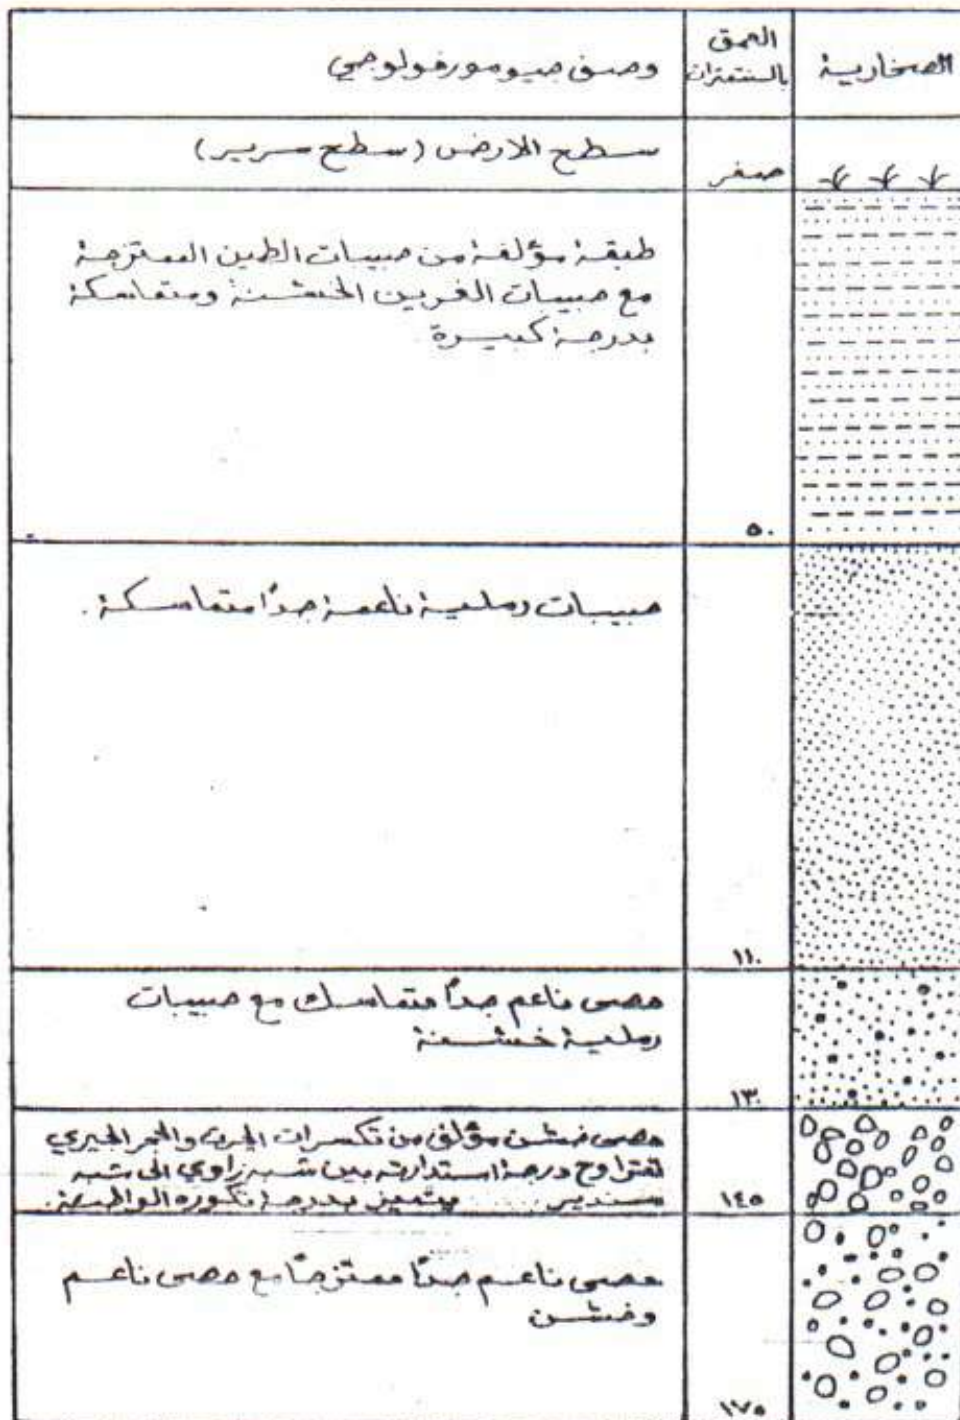 الصخارية
العمق
بالسنتمترات
وصف جيومورفولوجي
صفر
سطح الارض (سطح سرير)
طبقة مؤلفة من حبيبات الطين الممتزجة
مع حبيبات الغرين الخشنة ومتماسكة
بدرجة كبيرة
٥٠
حبيبات رملية ناعمة جداً متماسكة.
١١٠
حصى ناعم جداً متماسك مع حبيبات
رملية خشنة
١٣٠
حصى خشن مؤلف من تكسرات الجرت والحجر الجيري
تتراوح درجة استدارته بين شبه زاوي الى شبه
مستدير ويتميز بدرجة تكوره الواطئة.
١٤٥
حصى ناعم جداً ممتزجاً مع حصى ناعم
وخشن
١٧٠